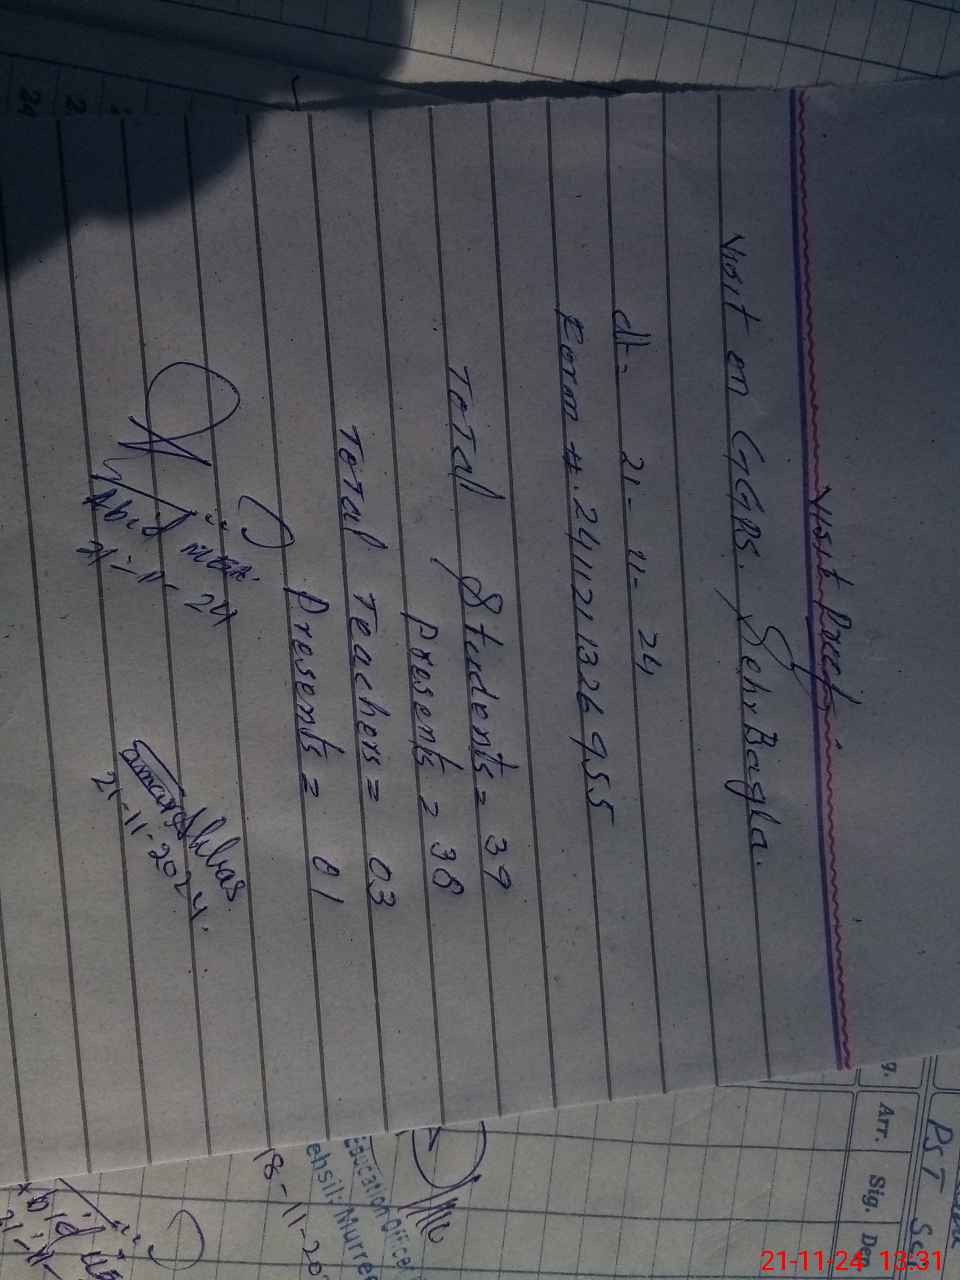 Visit Proof.
Visit on GGPS. Sehr Bagla.
dt= 21-11-24
Form #. 2411211326955
Total Students = 39
Presents = 38
Total Teachers = 03
Presents = 01
Abid MEA.
21-11-24
Abbas
21-11-2024.
Arr. Sig. Dep
PST
Education Officer
Murree
18-11-20
21-11-24 13:31